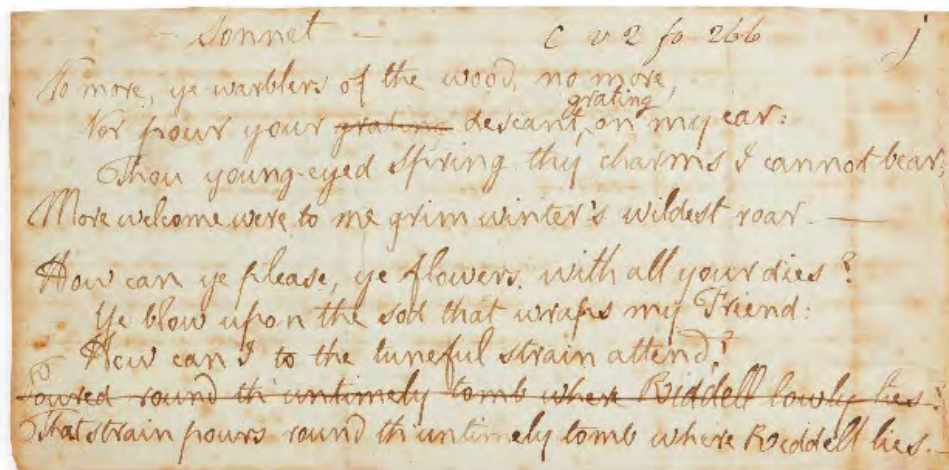 Sonnet — C v 2 fo 266 j
No more, ye warblers of the wood, no more,
grating
Nor pour your grating descant, on my ear:
Thou young-eyed Spring thy charms I cannot bear;
More welcome were to me grim winter's wildest roar —
How can ye please, ye flowers, with all your dies?
Ye blow upon the sod that wraps my Friend:
How can I to the tuneful strain attend?
Poured round th' untimely tomb where Riddell lowly lies.
That strain pours round th' untimely tomb where Riddell lies.